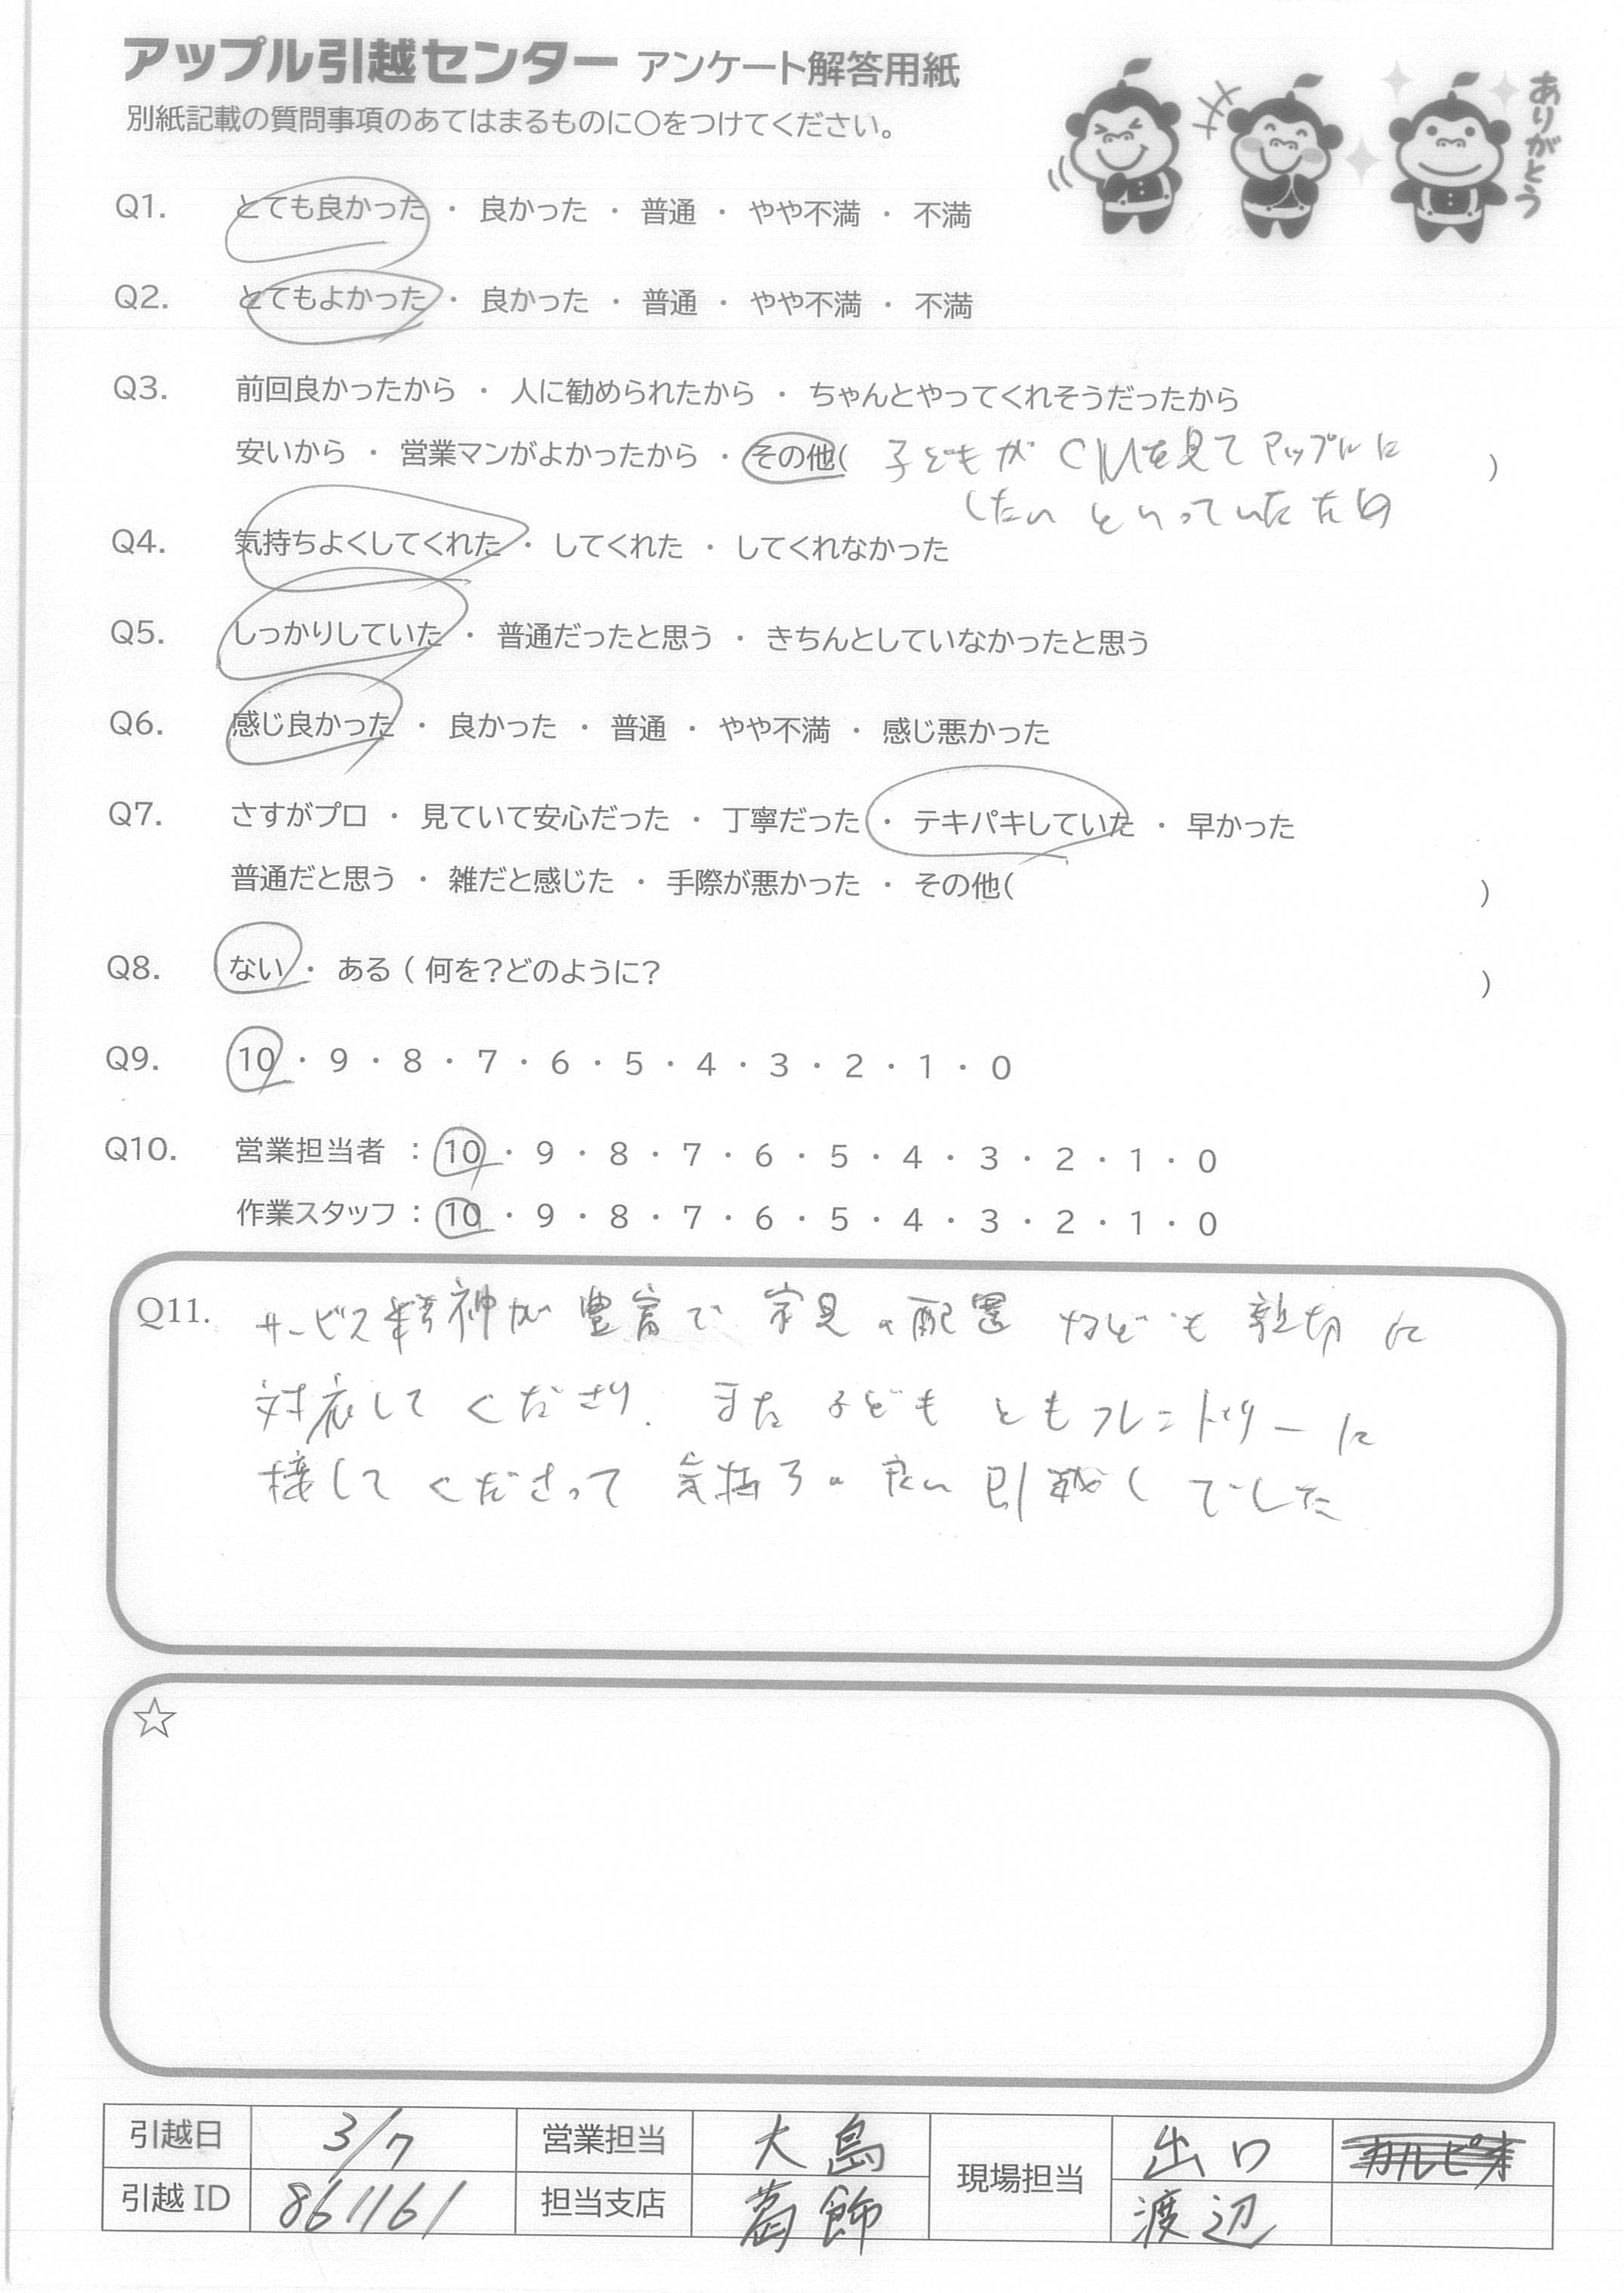 アップル引越センター アンケート解答用紙
別紙記載の質問事項のあてはまるものに○をつけてください。
ありがとう
Q1. とても良かった ・ 良かった ・ 普通 ・ やや不満 ・ 不満
Q2. とてもよかった ・ 良かった ・ 普通 ・ やや不満 ・ 不満
Q3. 前回良かったから ・ 人に勧められたから ・ ちゃんとやってくれそうだったから
安いから ・ 営業マンがよかったから ・ その他( 子どもが CMを見て アップルに )
したい といっていたため
Q4. 気持ちよくしてくれた ・ してくれた ・ してくれなかった
Q5. しっかりしていた ・ 普通だったと思う ・ きちんとしていなかったと思う
Q6. 感じ良かった ・ 良かった ・ 普通 ・ やや不満 ・ 感じ悪かった
Q7. さすがプロ ・ 見ていて安心だった ・ 丁寧だった ・ テキパキしていた ・ 早かった
普通だと思う ・ 雑だと感じた ・ 手際が悪かった ・ その他( )
Q8. ない ・ ある ( 何を?どのように? )
Q9. 10 ・ 9 ・ 8 ・ 7 ・ 6 ・ 5 ・ 4 ・ 3 ・ 2 ・ 1 ・ 0
Q10. 営業担当者 : 10 ・ 9 ・ 8 ・ 7 ・ 6 ・ 5 ・ 4 ・ 3 ・ 2 ・ 1 ・ 0
作業スタッフ : 10 ・ 9 ・ 8 ・ 7 ・ 6 ・ 5 ・ 4 ・ 3 ・ 2 ・ 1 ・ 0
Q11. サービス精神が 豊富で 家具の配置 なども 親切に
対応して くださり、 また 子ども ともフレンドリーに
接して くださって 気持ちの良い 引越し でした
☆
引越日 3/7 営業担当 大島 現場担当 出口
引越ID 861161 担当支店 葛飾 渡辺